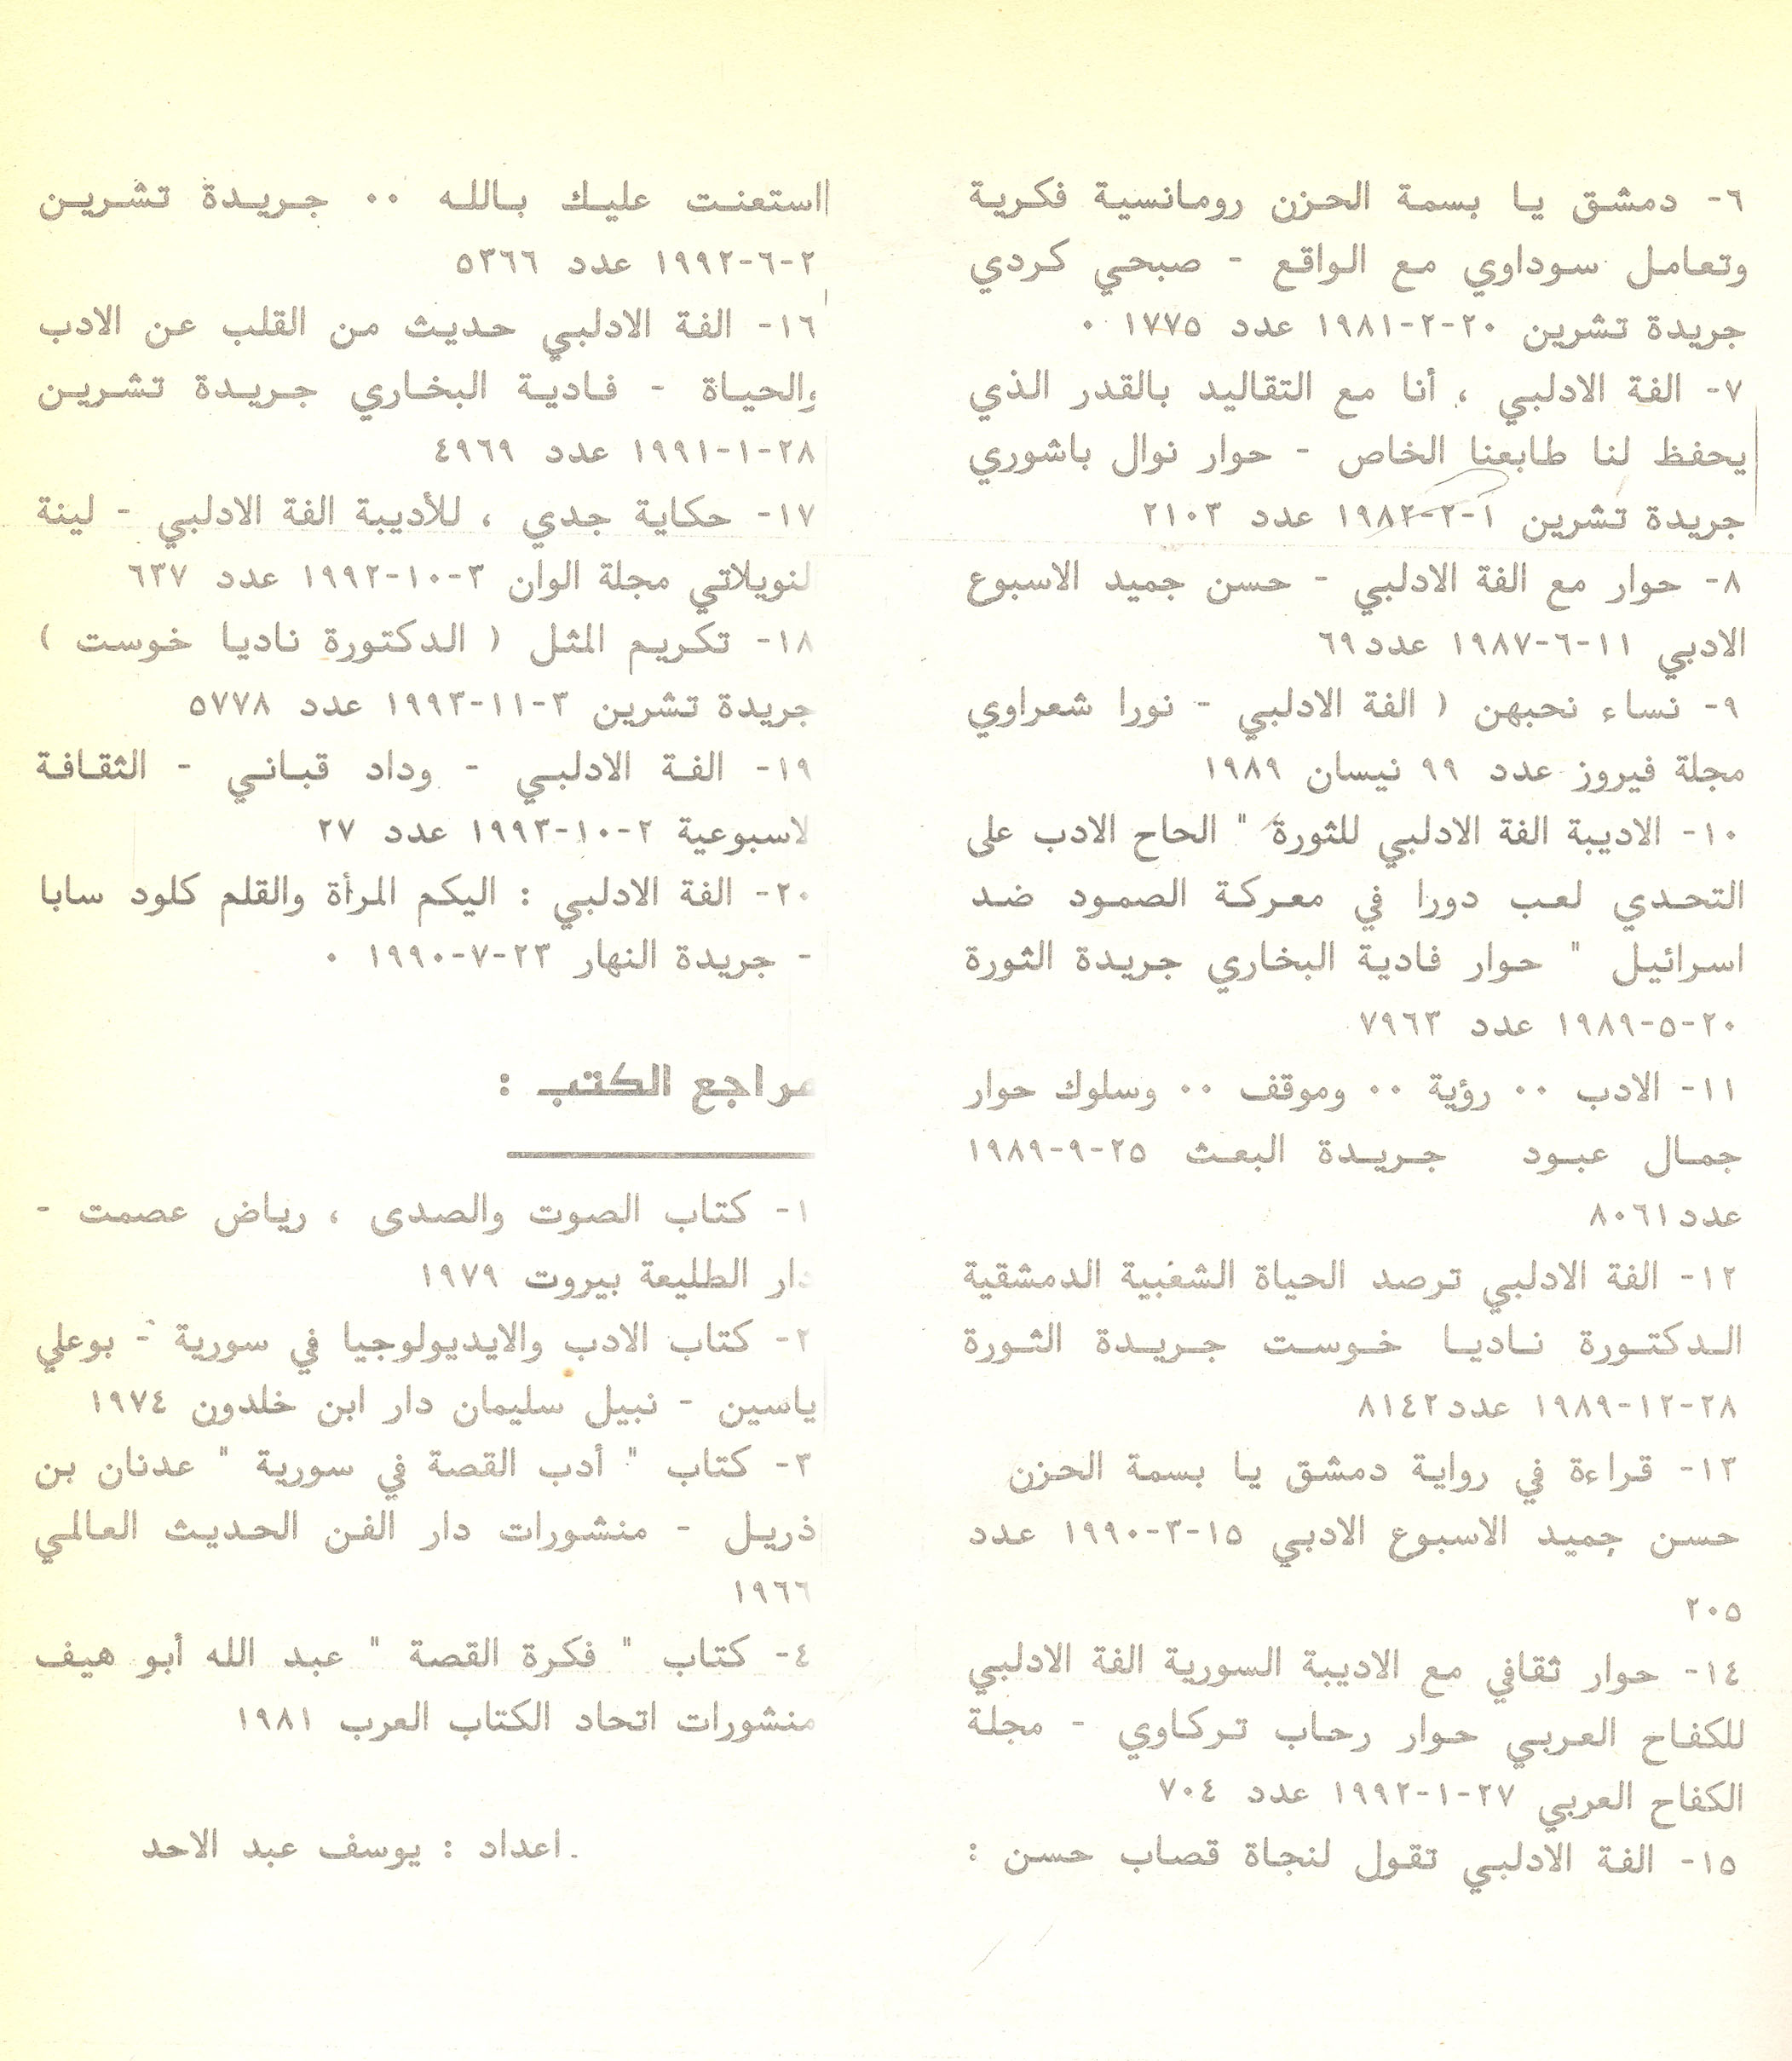 ٦- دمشق يا بسمة الحزن رومانسية فكرية
وتعامل سوداوي مع الواقع - صبحي كردي
جريدة تشرين ٢٠-٢-١٩٨١ عدد ١٧٧٥ ٠
٧- الفة الادلبي ، أنا مع التقاليد بالقدر الذي
يحفظ لنا طابعنا الخاص - حوار نوال باشوري
جريدة تشرين ١-٢-١٩٨٢ عدد ٢١٠٣
٨- حوار مع الفة الادلبي - حسن جميد الاسبوع
الادبي ١١-٦-١٩٨٧ عدد ٦٩
٩- نساء نحبهن ( الفة الادلبي - نورا شعراوي
مجلة فيروز عدد ٩٩ نيسان ١٩٨٩
١٠- الاديبة الفة الادلبي للثورة " الحاح الادب على
التحدي لعب دورا في معركة الصمود ضد
اسرائيل " حوار فادية البخاري جريدة الثورة
٢٠-٥-١٩٨٩ عدد ٧٩٦٣
١١- الادب ٠٠ رؤية ٠٠ وموقف ٠٠ وسلوك حوار
جمال عبود جريدة البعث ٢٥-٩-١٩٨٩
عدد ٨٠٦١
١٢- الفة الادلبي ترصد الحياة الشعبية الدمشقية
الدكتورة ناديا خوست جريدة الثورة
٢٨-١٢-١٩٨٩ عدد ٨١٤٢
١٣- قراءة في رواية دمشق يا بسمة الحزن
حسن جميد الاسبوع الادبي ١٥-٣-١٩٩٠ عدد
٢٠٥
١٤- حوار ثقافي مع الاديبة السورية الفة الادلبي
للكفاح العربي حوار رحاب تركاوي - مجلة
الكفاح العربي ٢٧-١-١٩٩٢ عدد ٧٠٤
١٥- الفة الادلبي تقول لنجاة قصاب حسن :
استعنت عليك بالله ٠٠ جريدة تشرين
٢-٦-١٩٩٢ عدد ٥٣٦٦
١٦- الفة الادلبي حديث من القلب عن الادب
والحياة - فادية البخاري جريدة تشرين
٢٨-١-١٩٩١ عدد ٤٩٦٩
١٧- حكاية جدي ، للأديبة الفة الادلبي - لينة
لنويلاتي مجلة الوان ٣-١٠-١٩٩٢ عدد ٦٣٧
١٨- تكريم المثل ( الدكتورة ناديا خوست )
جريدة تشرين ٣-١١-١٩٩٣ عدد ٥٧٧٨
١٩- الفة الادلبي - وداد قباني - الثقافة
لاسبوعية ٢-١٠-١٩٩٣ عدد ٢٧
٢٠- الفة الادلبي : اليكم المرأة والقلم كلود سابا
- جريدة النهار ٢٣-٧-١٩٩٠ ٠
مراجع الكتب :
١- كتاب الصوت والصدى ، رياض عصمت -
دار الطليعة بيروت ١٩٧٩
٢- كتاب الادب والايديولوجيا في سورية - بوعلي
ياسين - نبيل سليمان دار ابن خلدون ١٩٧٤
٣- كتاب " أدب القصة في سورية " عدنان بن
ذريل - منشورات دار الفن الحديث العالمي
١٩٦٦
٤- كتاب " فكرة القصة " عبد الله أبو هيف
منشورات اتحاد الكتاب العرب ١٩٨١
اعداد : يوسف عبد الاحد